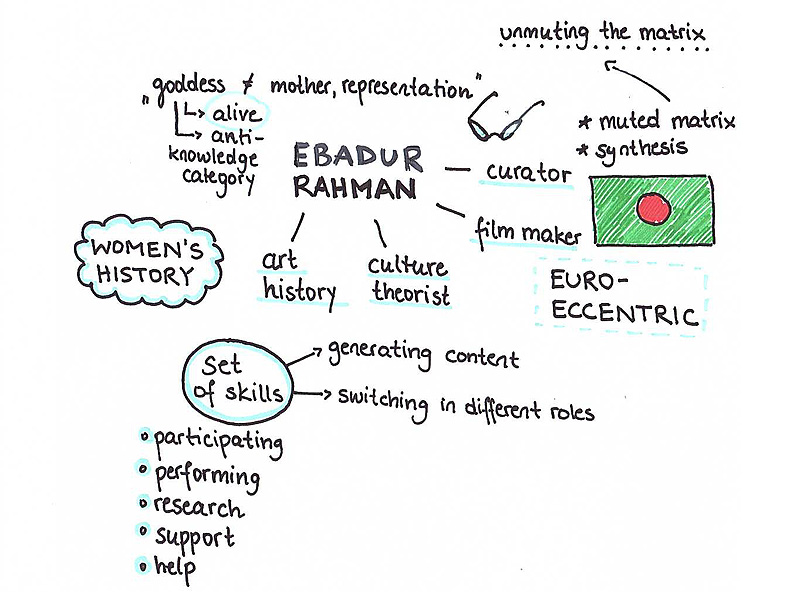 unmuting the matrix
* muted matrix
* synthesis
"goddess ≠ mother, representation"
↳ alive
↳ anti-
knowledge
category
EBADUR
RAHMAN
curator
film maker
culture
theorist
art
history
WOMEN'S
HISTORY
EURO-
ECCENTRIC
Set
of skills
→ generating content
→ switching in different roles
• participating
• performing
• research
• support
• help